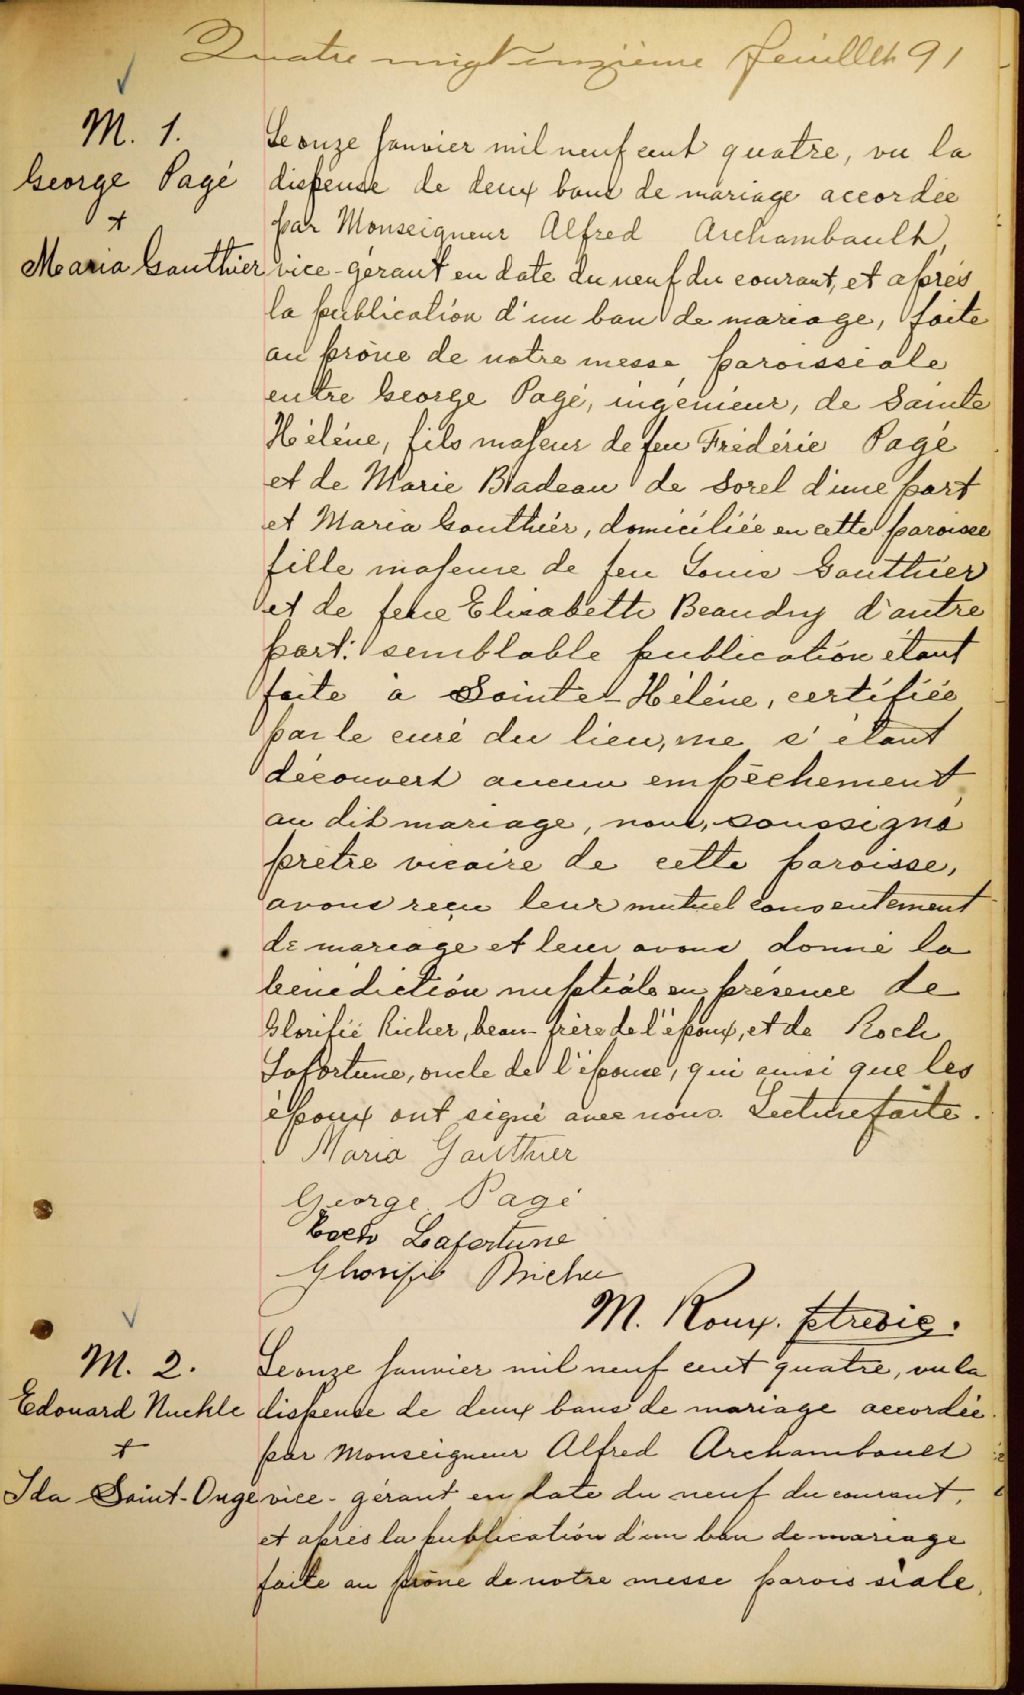 Quatre vingt onzième feuillet 91
M. 1.
George Pagé
+
Maria Gauthier
Le onze Janvier mil neuf cent quatre, vu la
dispense de deux bans de mariage accordée
par Monseigneur Alfred Archambault,
vice-gérant en date du neuf du courant, et après
la publication d'un ban de mariage, faite
au prône de notre messe paroissiale
entre George Pagé, ingénieur, de Sainte
Hélène, fils majeur de feu Frédéric Pagé
et de Marie Badeau de Sorel d'une part
et Maria Gauthier, domiciliée en cette paroisse
fille majeure de feu Louis Gauthier
et de feue Elisabeth Beaudry d'autre
part: semblable publication étant
faite à Sainte-Hélène, certifiée
par le curé du lieu, ne s'étant
découvert aucun empêchement
au dit mariage, nous, soussigné
prêtre vicaire de cette paroisse,
avons reçu leur mutuel consentement
de mariage et leur avons donné la
bénédiction nuptiale en présence de
Glorifié Richer, beau-frère de l'époux, et de Roch
Lafortune, oncle de l'épouse, qui ainsi que les
époux ont signé avec nous. Lecture faite.
Maria Gauthier
George Pagé
Roch Lafortune
M. Roux. ptre vic.
M. 2.
Edouard Nuckle
+
Ida Saint-Onge
Le onze Janvier mil neuf cent quatre, vu la
dispense de deux bans de mariage accordée
par Monseigneur Alfred Archambault
vice-gérant en date du neuf du courant,
et après la publication d'un ban de mariage
faite au prône de notre messe paroissiale,